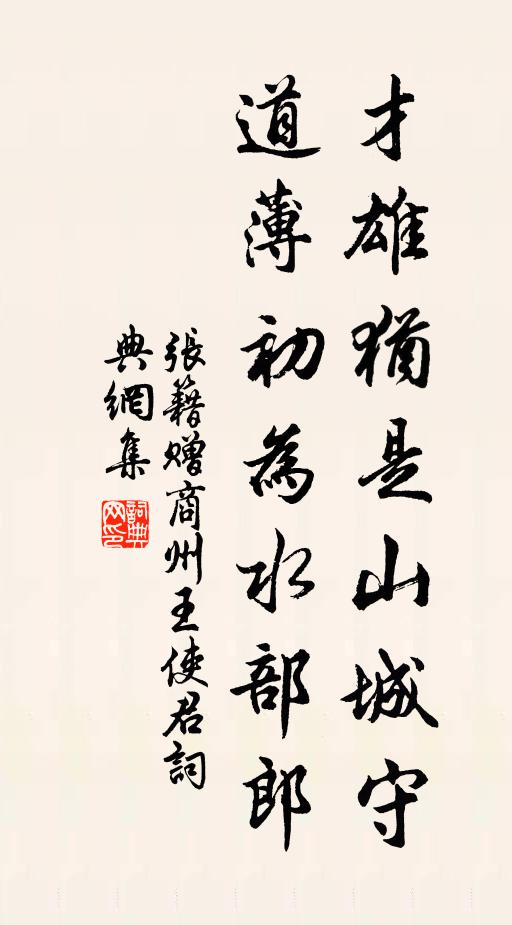 才雄猶是山城守
道薄初為水部郎
張籍贈商州王使君詞
典網集
詞典
网印